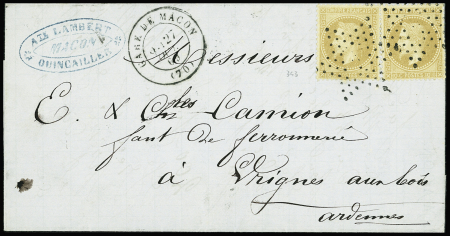 AZE LAMBERT
MACON
QUINCAILLER
GARE DE MACON
27
(70)
Messieurs
E. & Ch<sup>les</sup> Camion
fant de ferronnerie
à Vrignes aux bois
ardennes